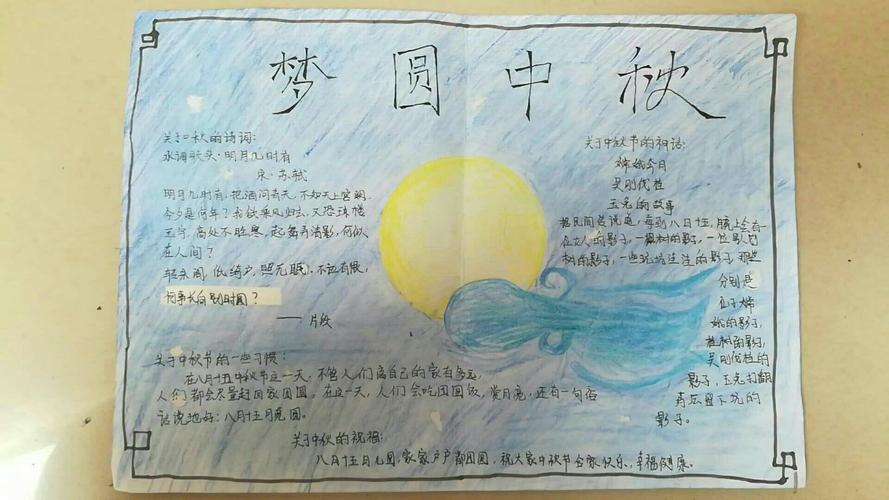 梦圆中秋
关于中秋的诗词:
水调歌头·明月几时有
宋·苏轼
明月几时有,把酒问青天,不知天上宫阙,
今夕是何年?我欲乘风归去,又恐琼楼
玉宇,高处不胜寒,起舞弄清影,何似
在人间?
转朱阁,低绮户,照无眠,不应有恨,
何事长向别时圆?
——片段
关于中秋节的神话:
嫦娥奔月
吴刚伐桂
玉兔的故事
据民间传说道,每到八月十五,月亮上会有一
位女人的影子,一棵树的影子,一位男人的
树的影子,一些坑坑洼洼的影子,那些
分别是
仙子嫦
娥的影子,
桂树的影子,
吴刚伐桂的
影子,玉兔打翻
留下坑的
影子。
关于中秋节的一些习惯:
在八月十五中秋节这一天,不管人们离自己的家有多远,
人们都会尽量赶回家团圆。在这一天,人们会吃团圆饭,赏月亮,还有一句俗
话说地好:八月十五月儿圆。
关于中秋的祝福:
八月十五月儿圆,家家户户都团圆,祝大家中秋节全家快乐,幸福健康。